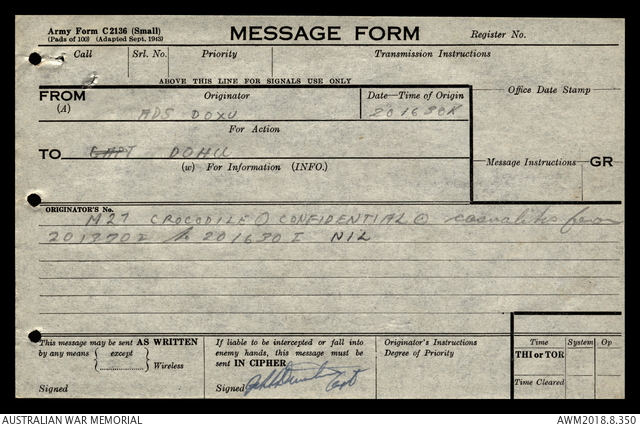 Army Form C2136 (Small)
(Pads of 100) (Adapted Sept. 1943)
MESSAGE FORM
Register No.
Call
Srl. No.
Priority
Transmission Instructions
ABOVE THIS LINE FOR SIGNALS USE ONLY
FROM
(A)
Originator
Date—Time of Origin
Office Date Stamp
ADS DOXU
201630K
For Action
TO
DOHU
(w) For Information (INFO.)
Message Instructions
GR
ORIGINATOR'S No.
M27 CROCODILE () CONFIDENTIAL () casualties from
to 201630 I NIL
This message may be sent AS WRITTEN
by any means { except } Wireless
Signed
If liable to be intercepted or fall into
enemy hands, this message must be
sent IN CIPHER
Signed Capt
Originator's Instructions
Degree of Priority
Time
System
Op
THI or TOR
Time Cleared
AUSTRALIAN WAR MEMORIAL
AWM2018.8.350